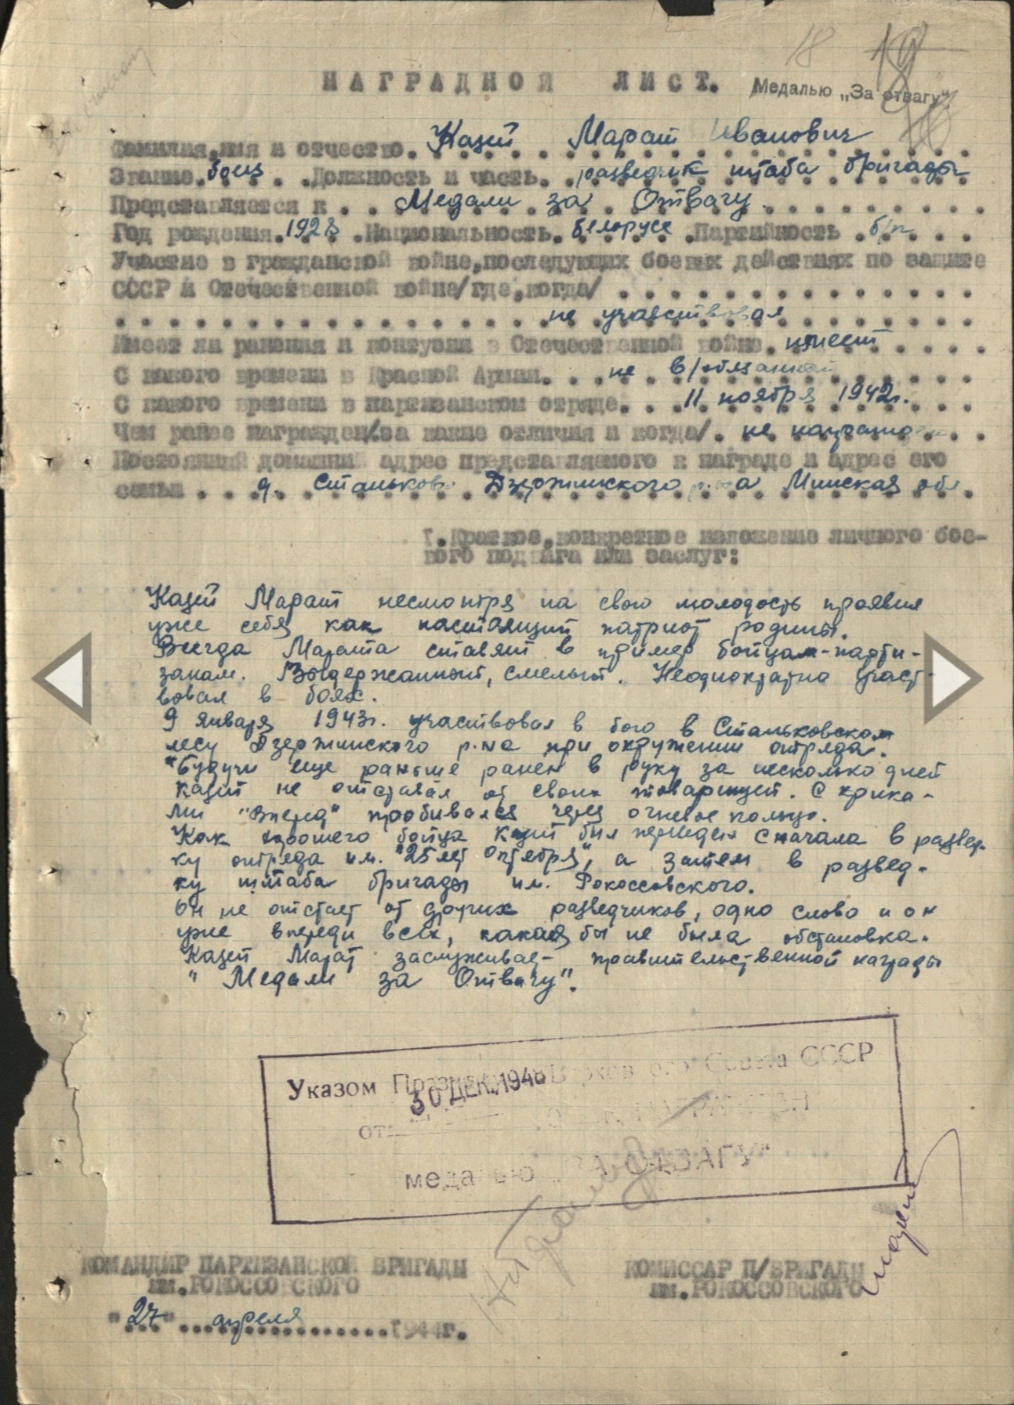 18 19
НАГРАДНОЙ ЛИСТ.
Медалью „За отвагу"
Фамилия, имя и отчество. Казей Марат Иванович
Звание. боец . .Должность и часть. разведчик штаба бригады
Представляется к . . Медали за Отвагу
Год рождения. .Национальность. белорусс .Партийность . б/п
Участие в гражданской войне,последующих боевых действиях по защите
СССР и Отечественной войне/где,когда/
не участвовал
Имеет ли ранения и контузии в Отечественной войне. имеет
С какого времени в Красной Армии. . . не в/обязанный
С какого времени в партизанском отряде. . . 11 ноября 1942г.
Чем ранее награжден/за какие отличия и когда/. не награждался
Постоянный домашний адрес представляемого к награде и адрес его
семьи . . д. Станьково Дзержинского р-на Минская обл.
I.Краткое,конкретное изложение личного бое-
вого подвига или заслуг:
Казей Марат несмотря на свою молодость проявил
уже себя как настоящий патриот родины.
Всегда Марата ставят в пример бойцам-парти-
занам. Выдержанный, смелый. Неоднократно участ-
вовал в боях.
9 января 1943г. участвовал в бою в Станьковском
лесу Дзержинского р-на при окружении отряда.
Будучи еще раньше ранен в руку за несколько дней
Казей не отставал от своих товарищей. С крика-
ми "Вперед" пробивался через огневое кольцо.
Как хорошего бойца Казей был переведен сначала в развед-
ку отряда им. "25 лет Октября", а затем в развед-
ку штаба бригады им. Рокоссовского.
Он не отстает от других разведчиков, одно слово и он
уже впереди всех, какая бы не была обстановка.
Казей Марат заслуживает правительственной награды
" Медали за Отвагу".
Указом Президиума Верховного Совета СССР
от 30 ДЕК. 1946 НАГРАЖДЕН
медалью „ЗА ОТВАГУ"
КОМАНДИР ПАРТИЗАНСКОЙ БРИГАДЫ
им.РОКОССОВСКОГО
КОМИССАР П/БРИГАДЫ
им.РОКОССОВСКОГО
"27" апреля 1944г.